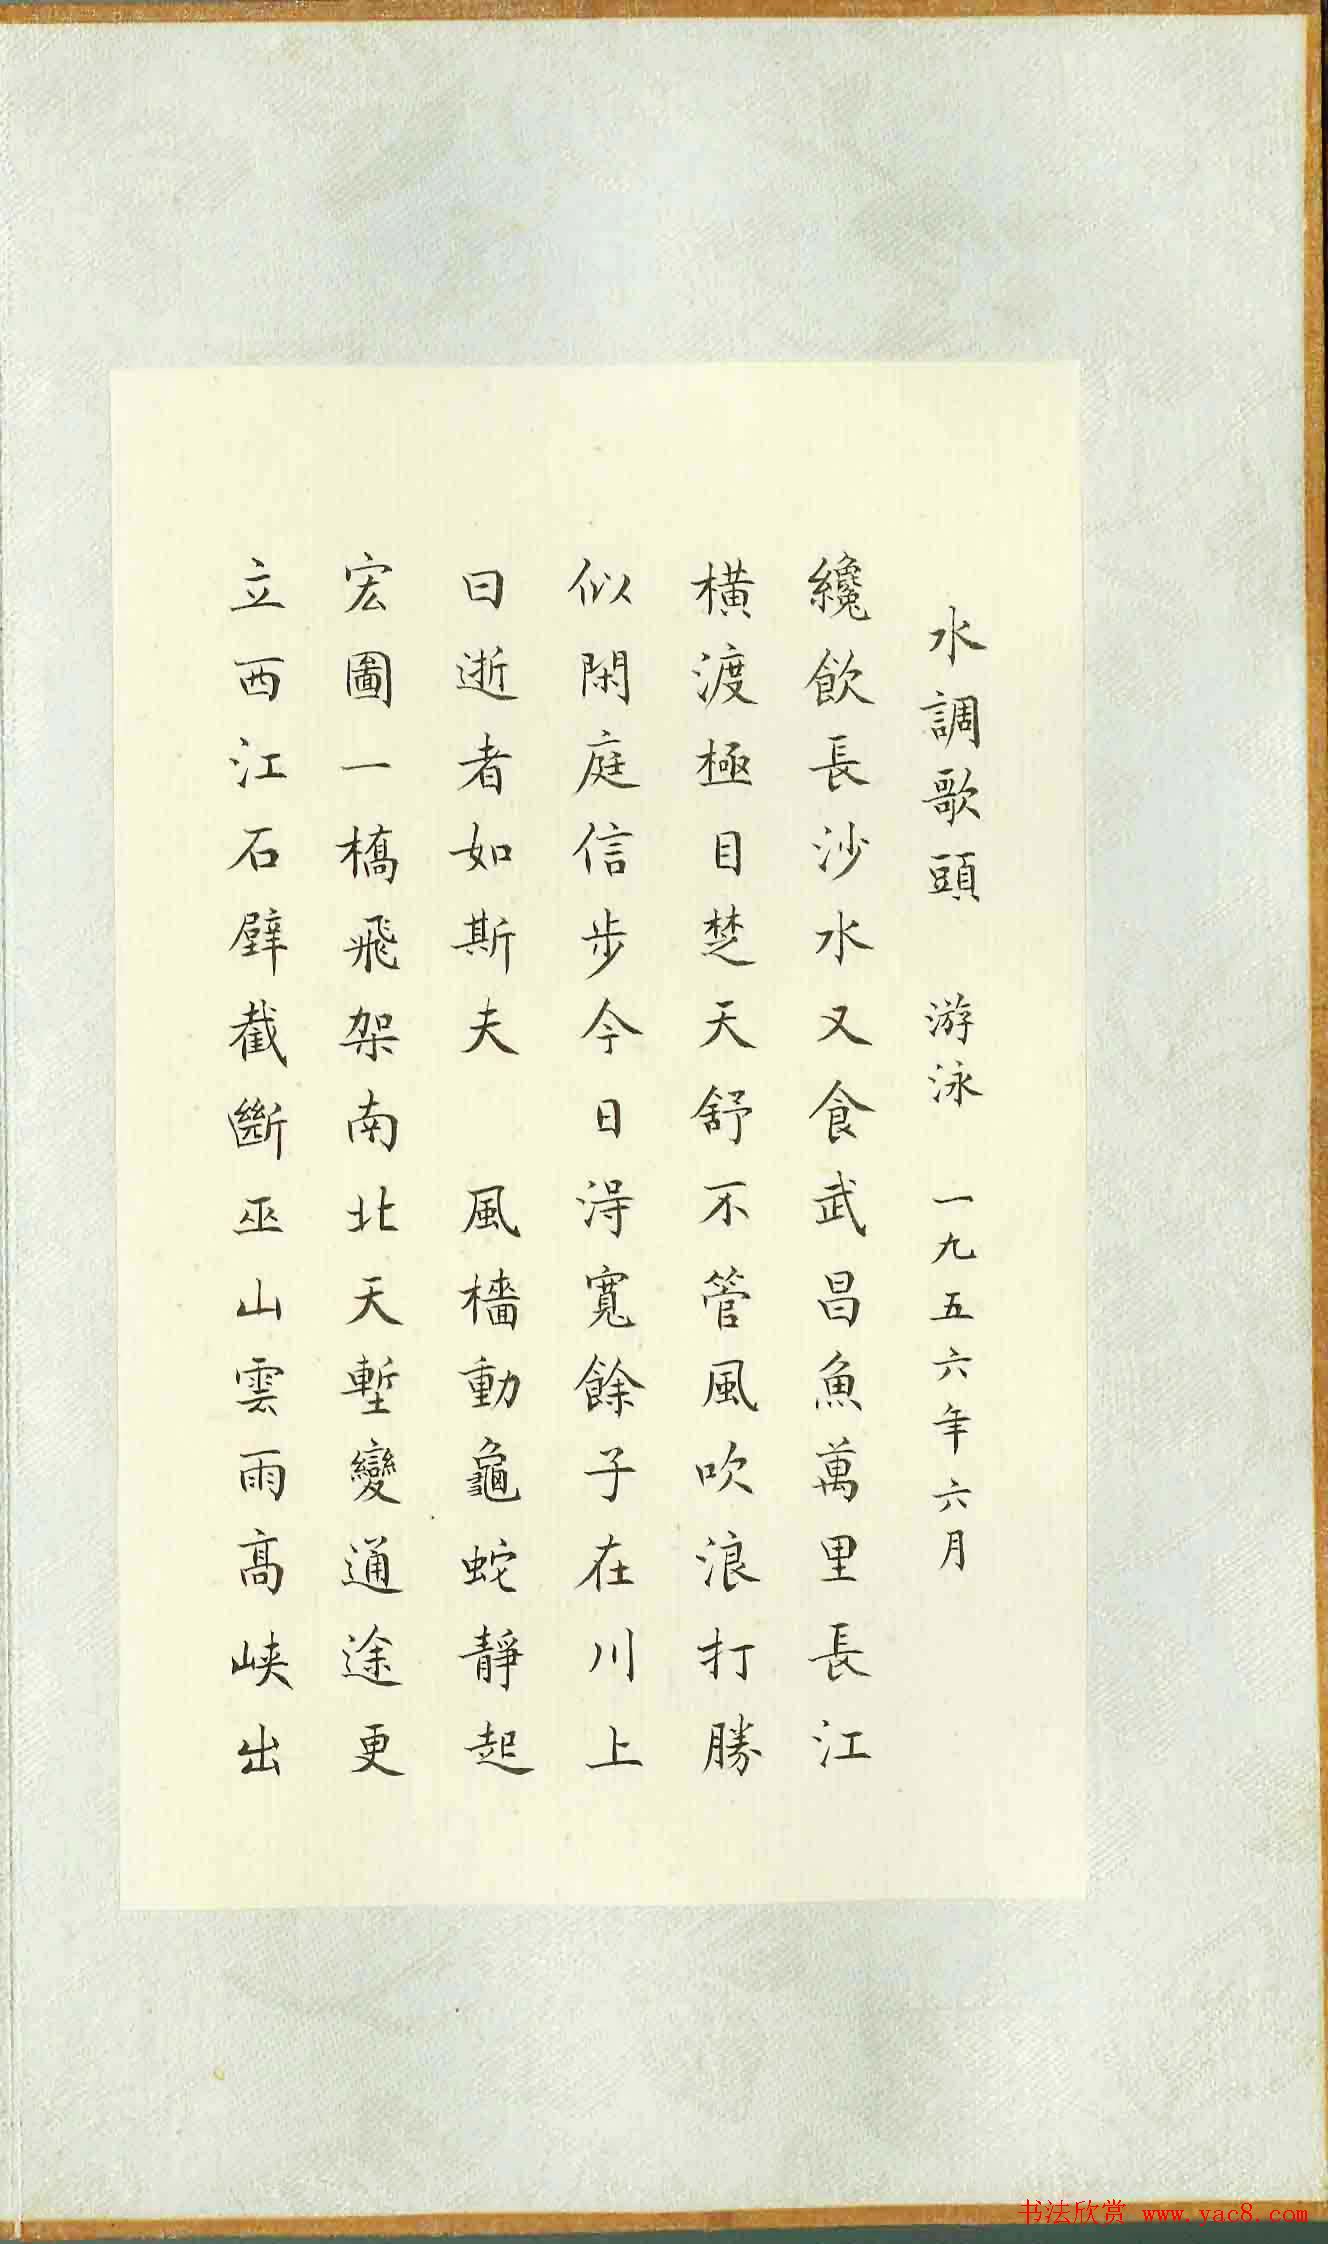 水調歌頭 游泳 一九五六年六月
纔飲長沙水又食武昌魚萬里長江
橫渡極目楚天舒不管風吹浪打勝
似閑庭信步今日得寬餘子在川上
曰逝者如斯夫 風檣動龜蛇靜起
宏圖一橋飛架南北天塹變通途更
立西江石壁截斷巫山雲雨高峽出
书法欣赏 www.yac8.com